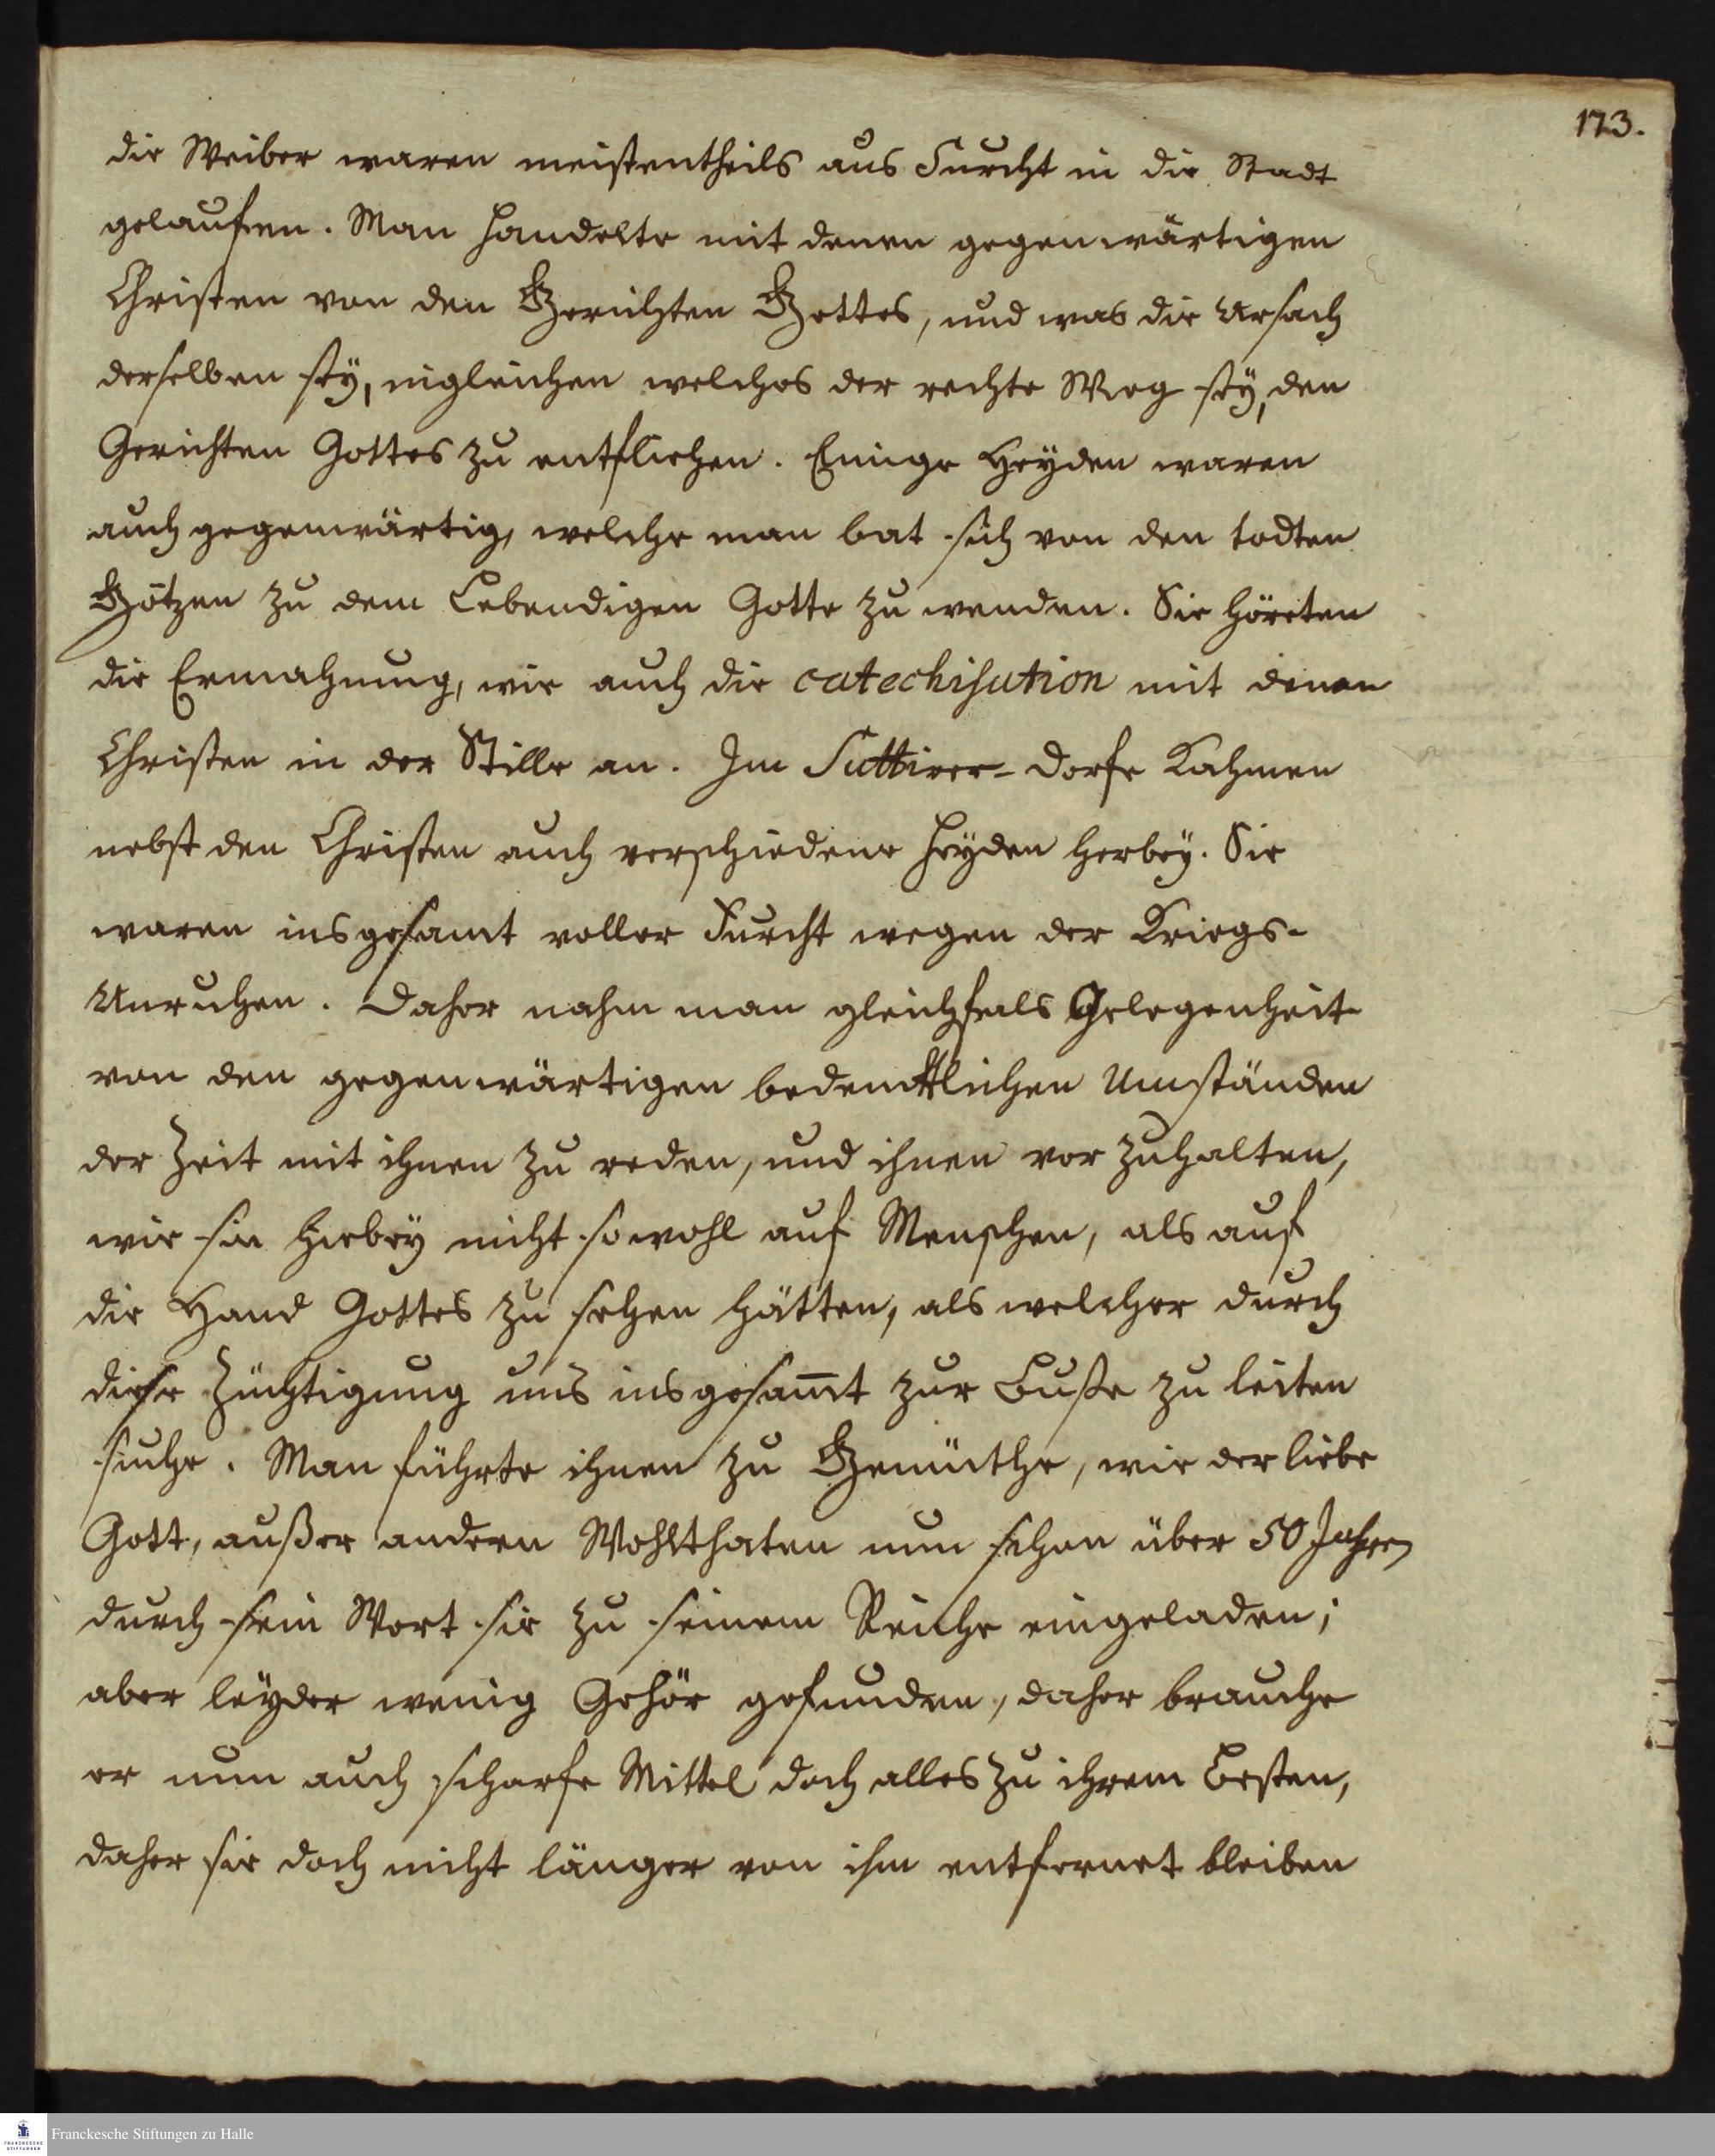 173.
die Weiber waren meistentheils aus Furcht in die Stadt
gelauffen. Man handelte mit denen gegenwärtigen
Christen von den Gerichten Gottes, und was die Ursach
derselben seÿ, ingleichen welches der rechte Weg seÿ, den
Gerichten Gottes zu entfliehen. Einige Heÿden waren
auch gegenwärtig, welche man bat sich von den todten
Götzen zu dem Lebendigen Gotte zu wenden. Sie höreten
die Ermahnung, wie auch die catechisation mit denen
Christen in der Stille an. Im Suttirer-Dorfe kahmen
nebst den Christen auch verschiedene Heÿden herbeÿ. Sie
waren insgesamt voller Furcht wegen der Kriegs-
Unruhen. Daher nahm man gleichfals Gelegenheit
von den gegenwärtigen bedencklichen Umständen
der Zeit mit ihnen zu reden, und ihnen vor zuhalten,
wie sie hiebeÿ nicht sowohl auf Menschen, als auf
die Hand Gottes zu sehen hätten, als welcher durch
diese Züchtigung uns insgesam̅t zur Buße zu leiten
suche. Man führte ihnen zu Gemüthe, wie der liebe
Gott, außer andern Wohlthaten nun schon über 50 Jahren
durch sein Wort sie zu seinem Reiche eingeladen;
aber leÿder wenig Gehör gefunden, daher brauche
er nun auch scharfe Mittel doch alles zu ihrem Besten,
daher sie doch nicht länger von ihm entfernet bleiben
Franckesche Stiftungen zu Halle